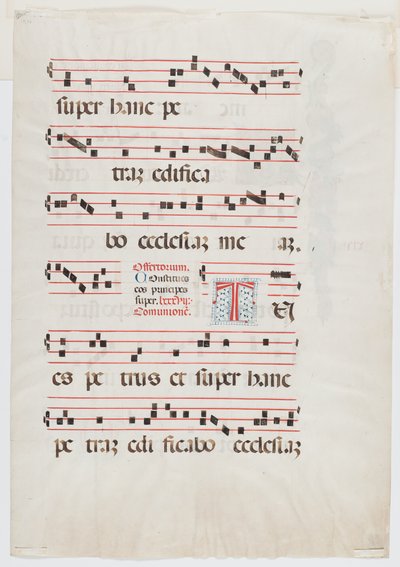 super hanc pe
traz edifica
bo ecclesiaz me az.
Offertorium.
Constitues
eos principes
super. lxxxvij.
Comunione.
TU
es pe trus et super hanc
pe traz edi ficabo ecclesiaz